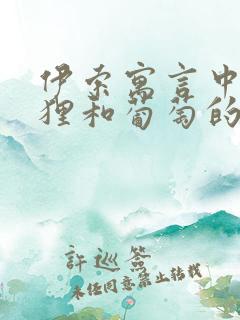 伊索寓言中
狸和葡萄的
許巡簽
未经同意禁止转载